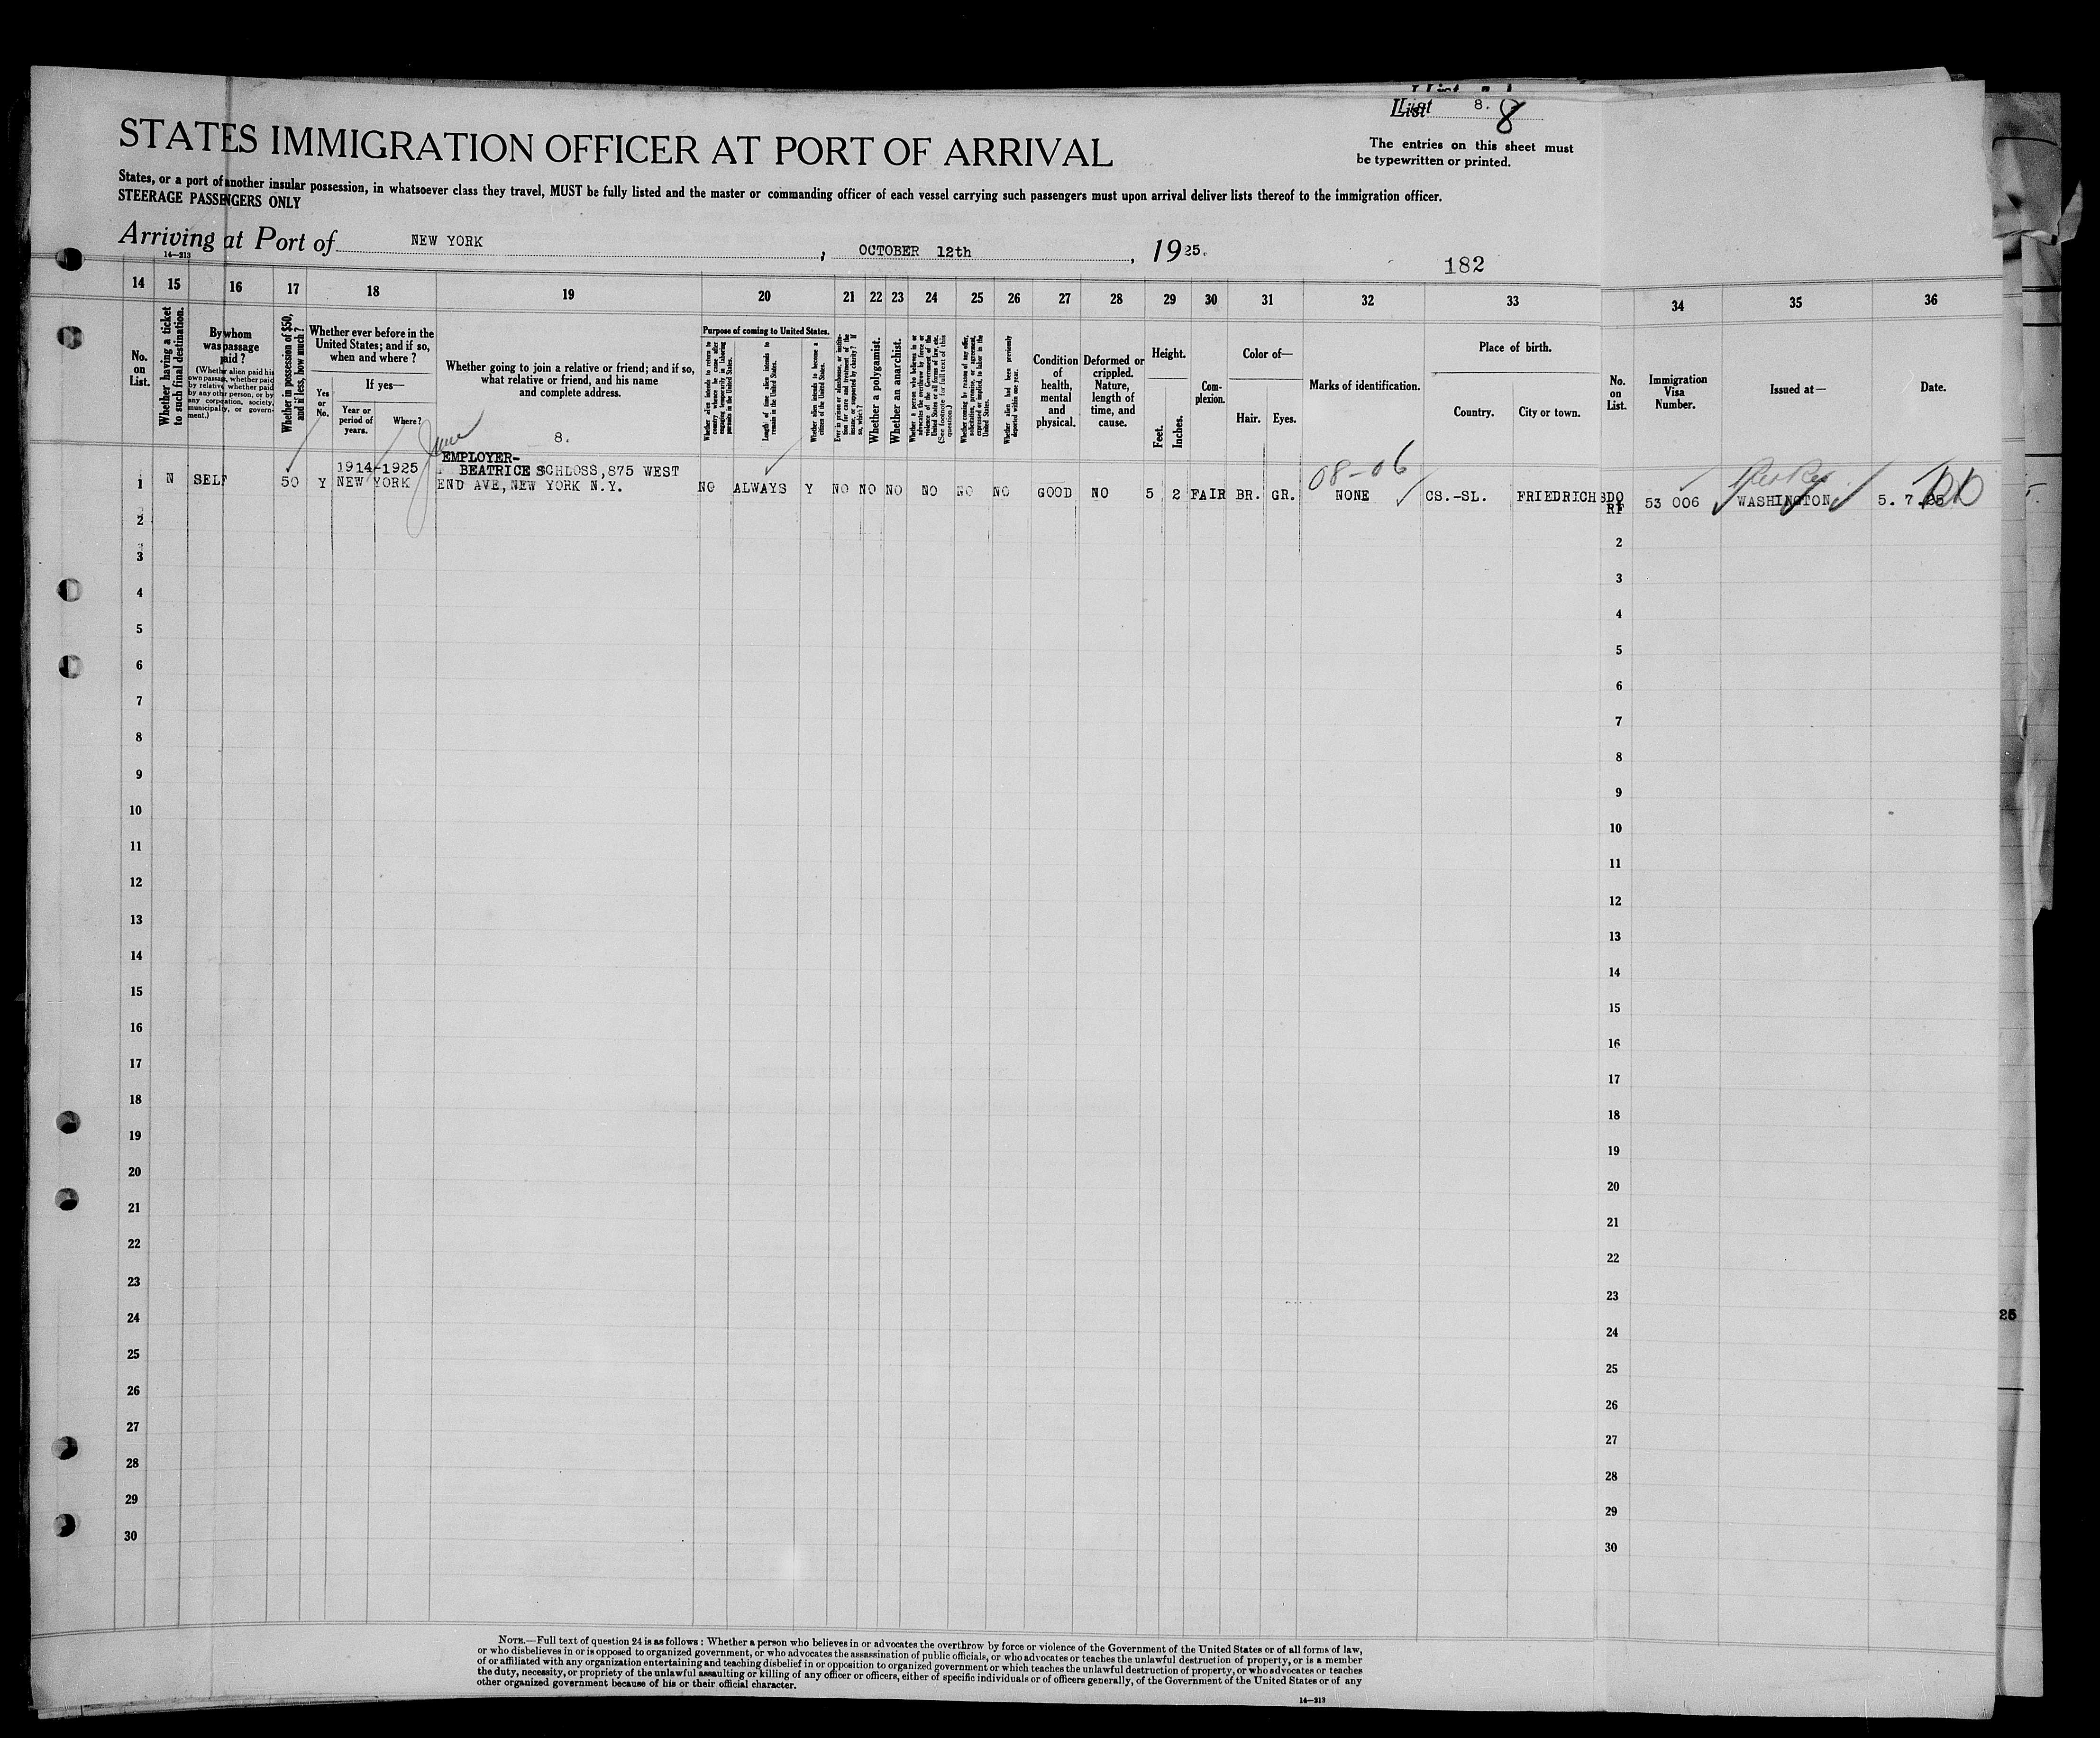 List 8. 8
The entries on this sheet must
be typewritten or printed.
STATES IMMIGRATION OFFICER AT PORT OF ARRIVAL
States, or a port of another insular possession, in whatsoever class they travel, MUST be fully listed and the master or commanding officer of each vessel carrying such passengers must upon arrival deliver lists thereof to the immigration officer.
STEERAGE PASSENGERS ONLY
Arriving at Port of NEW YORK, OCTOBER 12th, 1925.
14—213
182
14 15 16 17 18 19 20 21 22 23 24 25 26 27 28 29 30 31 32 33 34 35 36
No. on List.
Whether having a ticket to such final destination.
By whom was passage paid?
(Whether alien paid his own passage, whether paid by relative, whether paid by any other person, or by any corporation, society, municipality, or government.)
Whether in possession of $50, and if less, how much?
Whether ever before in the United States; and if so, when and where?
Yes or No.
If yes—
Year or period of years.
Where?
Whether going to join a relative or friend; and if so, what relative or friend, and his name and complete address.
8.
Purpose of coming to United States.
Whether alien intends to return to country whence he came after engaging temporarily in laboring pursuits in the United States.
Length of time alien intends to remain in the United States.
Whether alien intends to become a citizen of the United States.
Ever in prison or almshouse, or institution for care and treatment of the insane, or supported by charity? If so, which?
Whether a polygamist.
Whether an anarchist.
Whether a person who believes in or advocates the overthrow by force or violence of the Government of the United States or all forms of law, etc. (See footnote for full text of this question.)
Whether coming by reason of any offer, solicitation, promise, or agreement, expressed or implied, to labor in the United States.
Whether alien had been previously deported within one year.
Condition of health, mental and physical.
Deformed or crippled. Nature, length of time, and cause.
Height.
Feet.
Inches.
Complexion.
Color of—
Hair.
Eyes.
Marks of identification.
Place of birth.
Country.
City or town.
No. on List.
Immigration Visa Number.
Issued at—
Date.
June
EMPLOYER-
1914-1925 BEATRICE SCHLOSS, 875 WEST 08-06
1 N SELF 50 Y NEW YORK END AVE, NEW YORK N.Y. NO ALWAYS Y NO NO NO NO NO NO GOOD NO 5 2 FAIR BR. GR. NONE CS.-SL. FRIEDRICHSDORF 53 006 WASHINGTON 5. 7. 25
2 2
3 3
4 4
5 5
6 6
7 7
8 8
9 9
10 10
11 11
12 12
13 13
14 14
15 15
16 16
17 17
18 18
19 19
20 20
21 21
22 22
23 23
24 24
25 25
26 26
27 27
28 28
29 29
30 30
25
NOTE.—Full text of question 24 is as follows: Whether a person who believes in or advocates the overthrow by force or violence of the Government of the United States or of all forms of law,
or who disbelieves in or is opposed to organized government, or who advocates the assassination of public officials, or who advocates or teaches the unlawful destruction of property, or is a member
of or affiliated with any organization entertaining and teaching disbelief in or opposition to organized government or which teaches the unlawful destruction of property, or who advocates or teaches
the duty, necessity, or propriety of the unlawful assaulting or killing of any officer or officers, either of specific individuals or of officers generally, of the Government of the United States or of any
other organized government because of his or their official character.
14—213